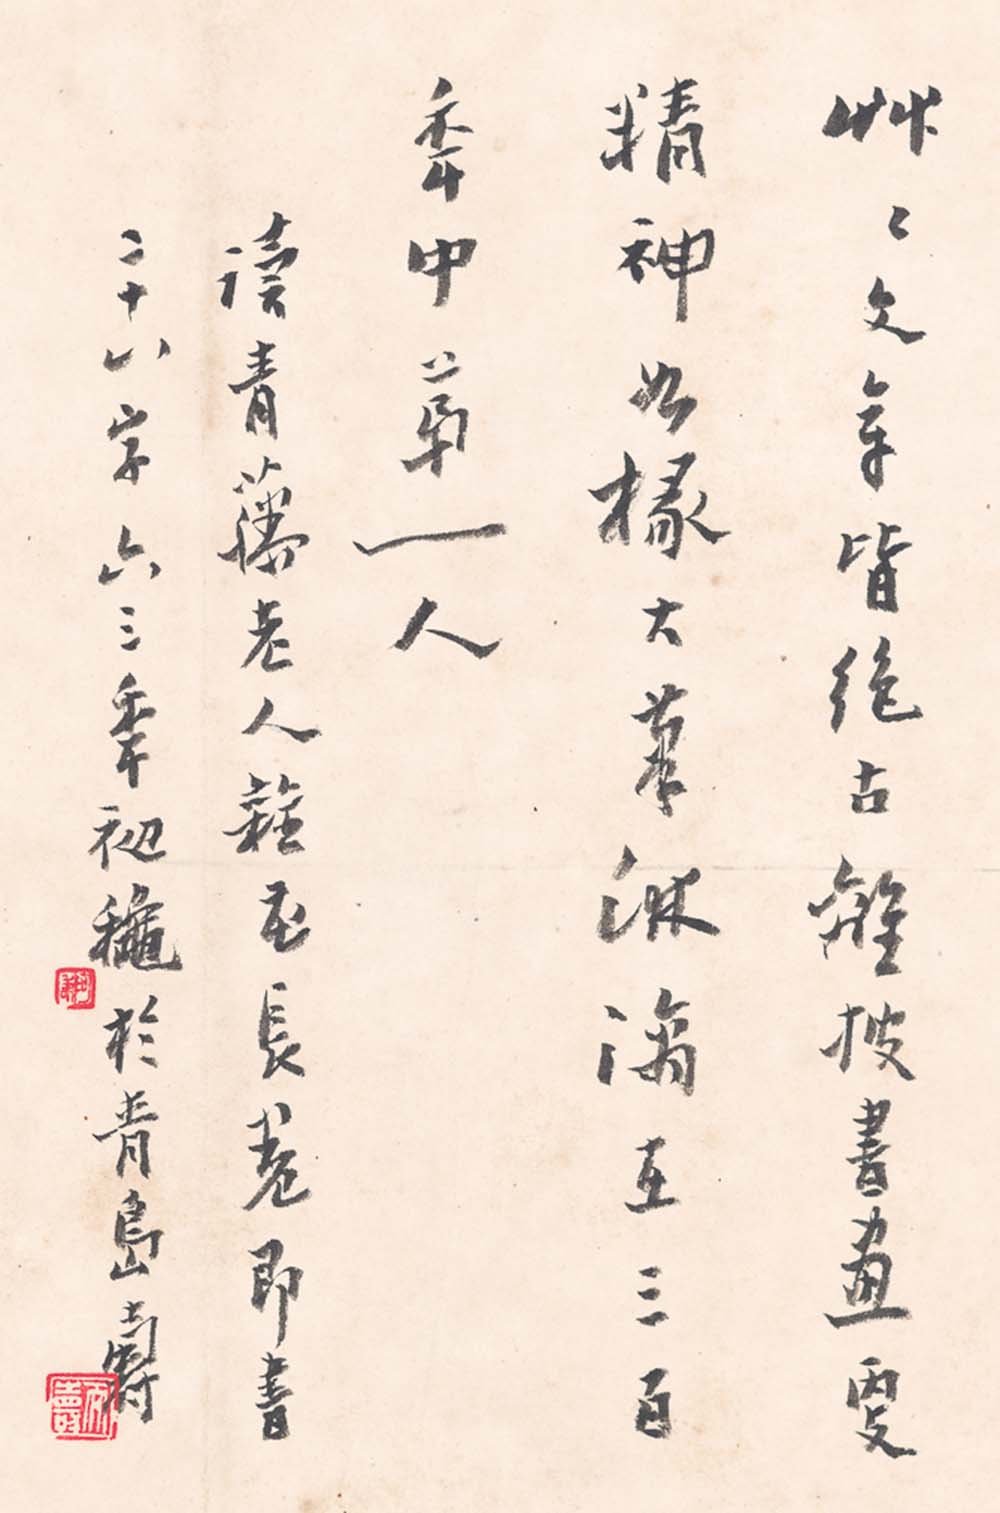 艸〻文章皆絕古離披書畫更
精神如椽大筆淋漓在三百
年中第一人
讀青藤老人雜花長卷即書
二十八字六三年初穐於青島壽